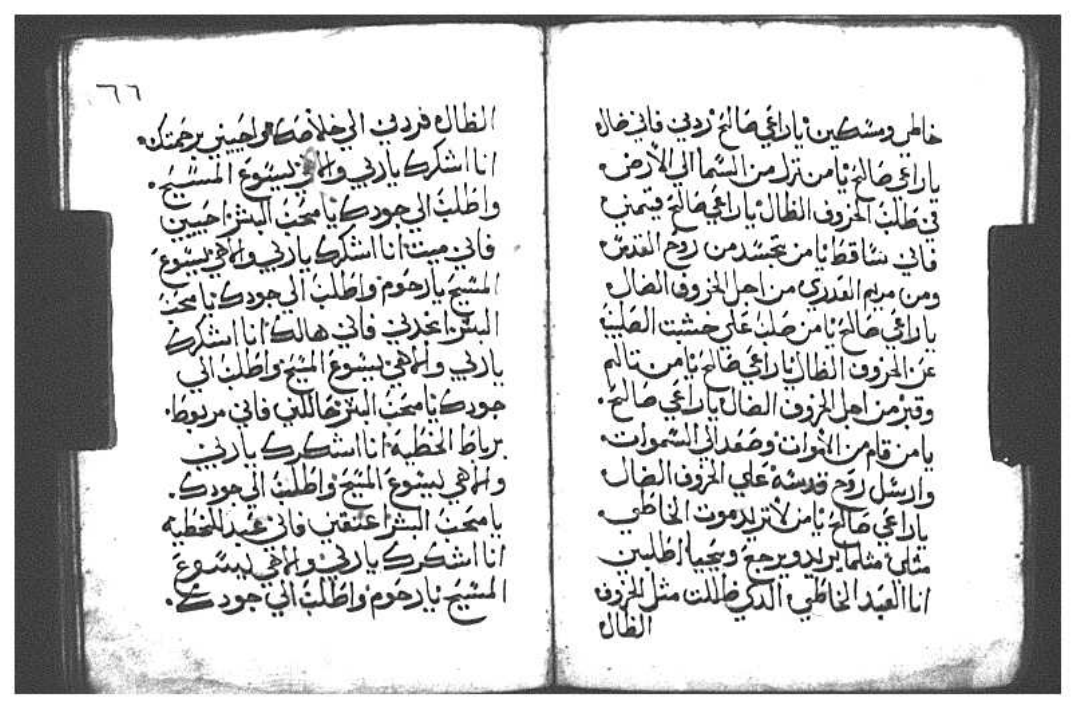 خاطي ومسكين يا راعي صالح ردني فاني ضال
يا راعي صالح يا من نزل من السما الي الأرض
في طلب الخروف الظال يا راعي صالح قيمني
فاني ساقط يا من تجسد من روح القدس
ومن مريم العدري من اجل الخروف الضال
يا راعي صالح يا من صلب علي خشبت الصليب
عن الخروف الظال يا راعي صالح يا من تالم
وقبر من اجل الخروف الضال يا راعي صالح
يا من قام من الأموات وصعد الي السموات
وارسل روح قدسه علي الخروف الضال
يا راعي صالح يا من لا تريد موت الخاطي
مثلي مثلما يريد ويرجع ويحيا اطلبني
انا العبد الخاطي الدي ظللت مثل الخروف
الظال
٦٦
الظال فردني الي خلاصك واحييني برحمتك
انا اشكرك يا ربي والاهي يسوع المسيح
واطلب الي جودك يا محب البشر احييني
فاني ميت انا اشكرك يا ربي والاهي يسوع
المسيح يا رحوم واطلب الي جودك يا محب
البشر انجدني فاني هالك انا اشكرك
يا ربي والاهي يسوع المسيح واطلب الي
جودك يا محب البشر حاللني فاني مربوط
برباط الخطية انا اشكرك يا ربي
والاهي يسوع المسيح واطلب الي جودك
يا محب البشر اعتقني فاني عبد للخطيه
انا اشكرك يا ربي والاهي يسوع
المسيح يا رحوم واطلب الي جودك